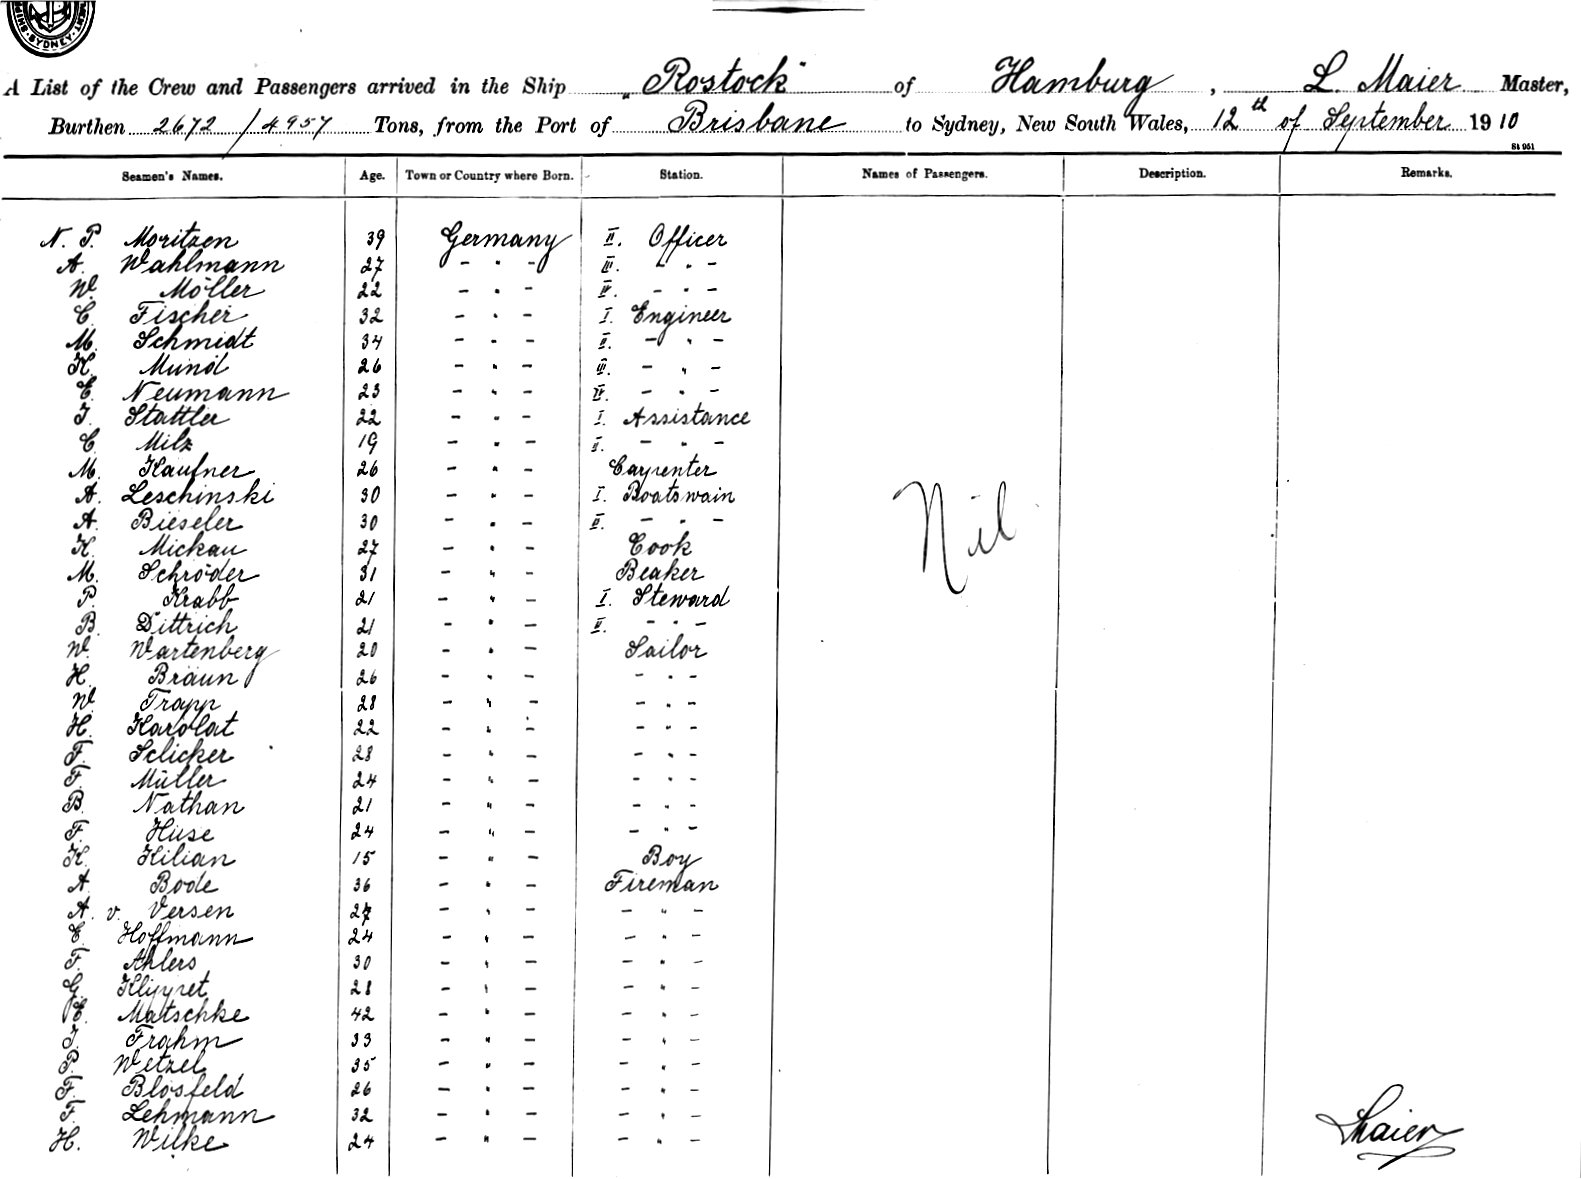 SYDNEY
A List of the Crew and Passengers arrived in the Ship "Rostock" of Hamburg, L. Maier Master,
Burthen 2672/4957 Tons, from the Port of Brisbane to Sydney, New South Wales, 12th of September 1910
St 951
Seamen's Names. Age. Town or Country where Born. Station. Names of Passengers. Description. Remarks.
N. P. Moritzen 39 Germany II. Officer
A. Wahlmann 27 - " - III. - " -
W. Möller 22 - " - IV. - " -
C. Fischer 32 - " - I. Engineer
M. Schmidt 34 - " - II. - " -
K. Mund 26 - " - III. - " -
E. Neumann 23 - " - IV. - " -
J. Stattler 22 - " - I. Assistance
C. Milz 19 - " - II. - " -
M. Kaufner 26 - " - Carpenter
A. Leschinski 30 - " - I. Boatswain
A. Bieseler 30 - " - II. - " -
K. Mickau 27 - " - Cook
M. Schröder 31 - " - Beaker
P. Krabb 21 - " - I. Steward
B. Dittrich 21 - " - II. - " -
W. Wartenberg 20 - " - Sailor
H. Braun 26 - " - - " -
W. Trapp 28 - " - - " -
H. Karolat 22 - " - - " -
F. Sclicker 28 - " - - " -
F. Müller 24 - " - - " -
B. Nathan 21 - " - - " -
F. Huse 24 - " - - " -
K. Kilian 15 - " - Boy
A. Bode 36 - " - Fireman
A. v. Versen 27 - " - - " -
E. Hoffmann 24 - " - - " -
F. Ahlers 30 - " - - " -
G. Klippret 28 - " - - " -
E. Matschke 42 - " - - " -
J. Frahm 33 - " - - " -
P. Wetzel 35 - " - - " -
F. Blosfeld 26 - " - - " -
F. Lehmann 32 - " - - " -
H. Wilke 24 - " - - " -
Nil
LMaier